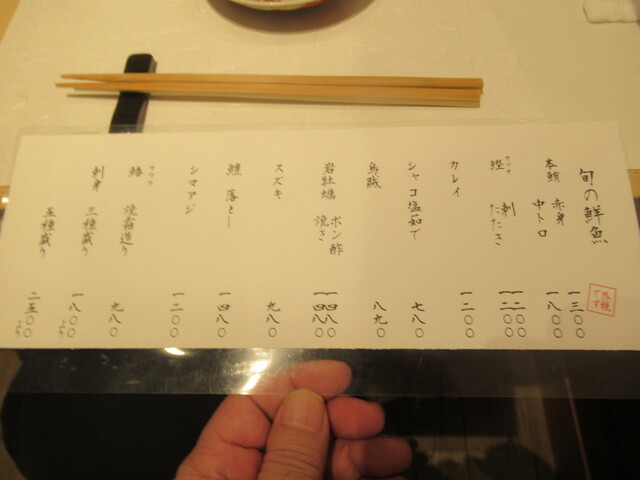 旬の鮮魚
外税です
本鮪 赤身 一三〇〇
中トロ 一八〇〇
カツオ
鰹 刺 一二〇〇
たたき 一二〇〇
カレイ 一二〇〇
シャコ塩茹で 七八〇
烏賊 八九〇
岩牡蠣 ポン酢 一四八〇
焼き 一四八〇
スズキ 九八〇
鱧 落とし 一四八〇
シマアジ 一二〇〇
サワラ
鰆 焼霜造り 九八〇
刺身 三種盛り 一八〇〇より
五種盛り 二五〇〇より